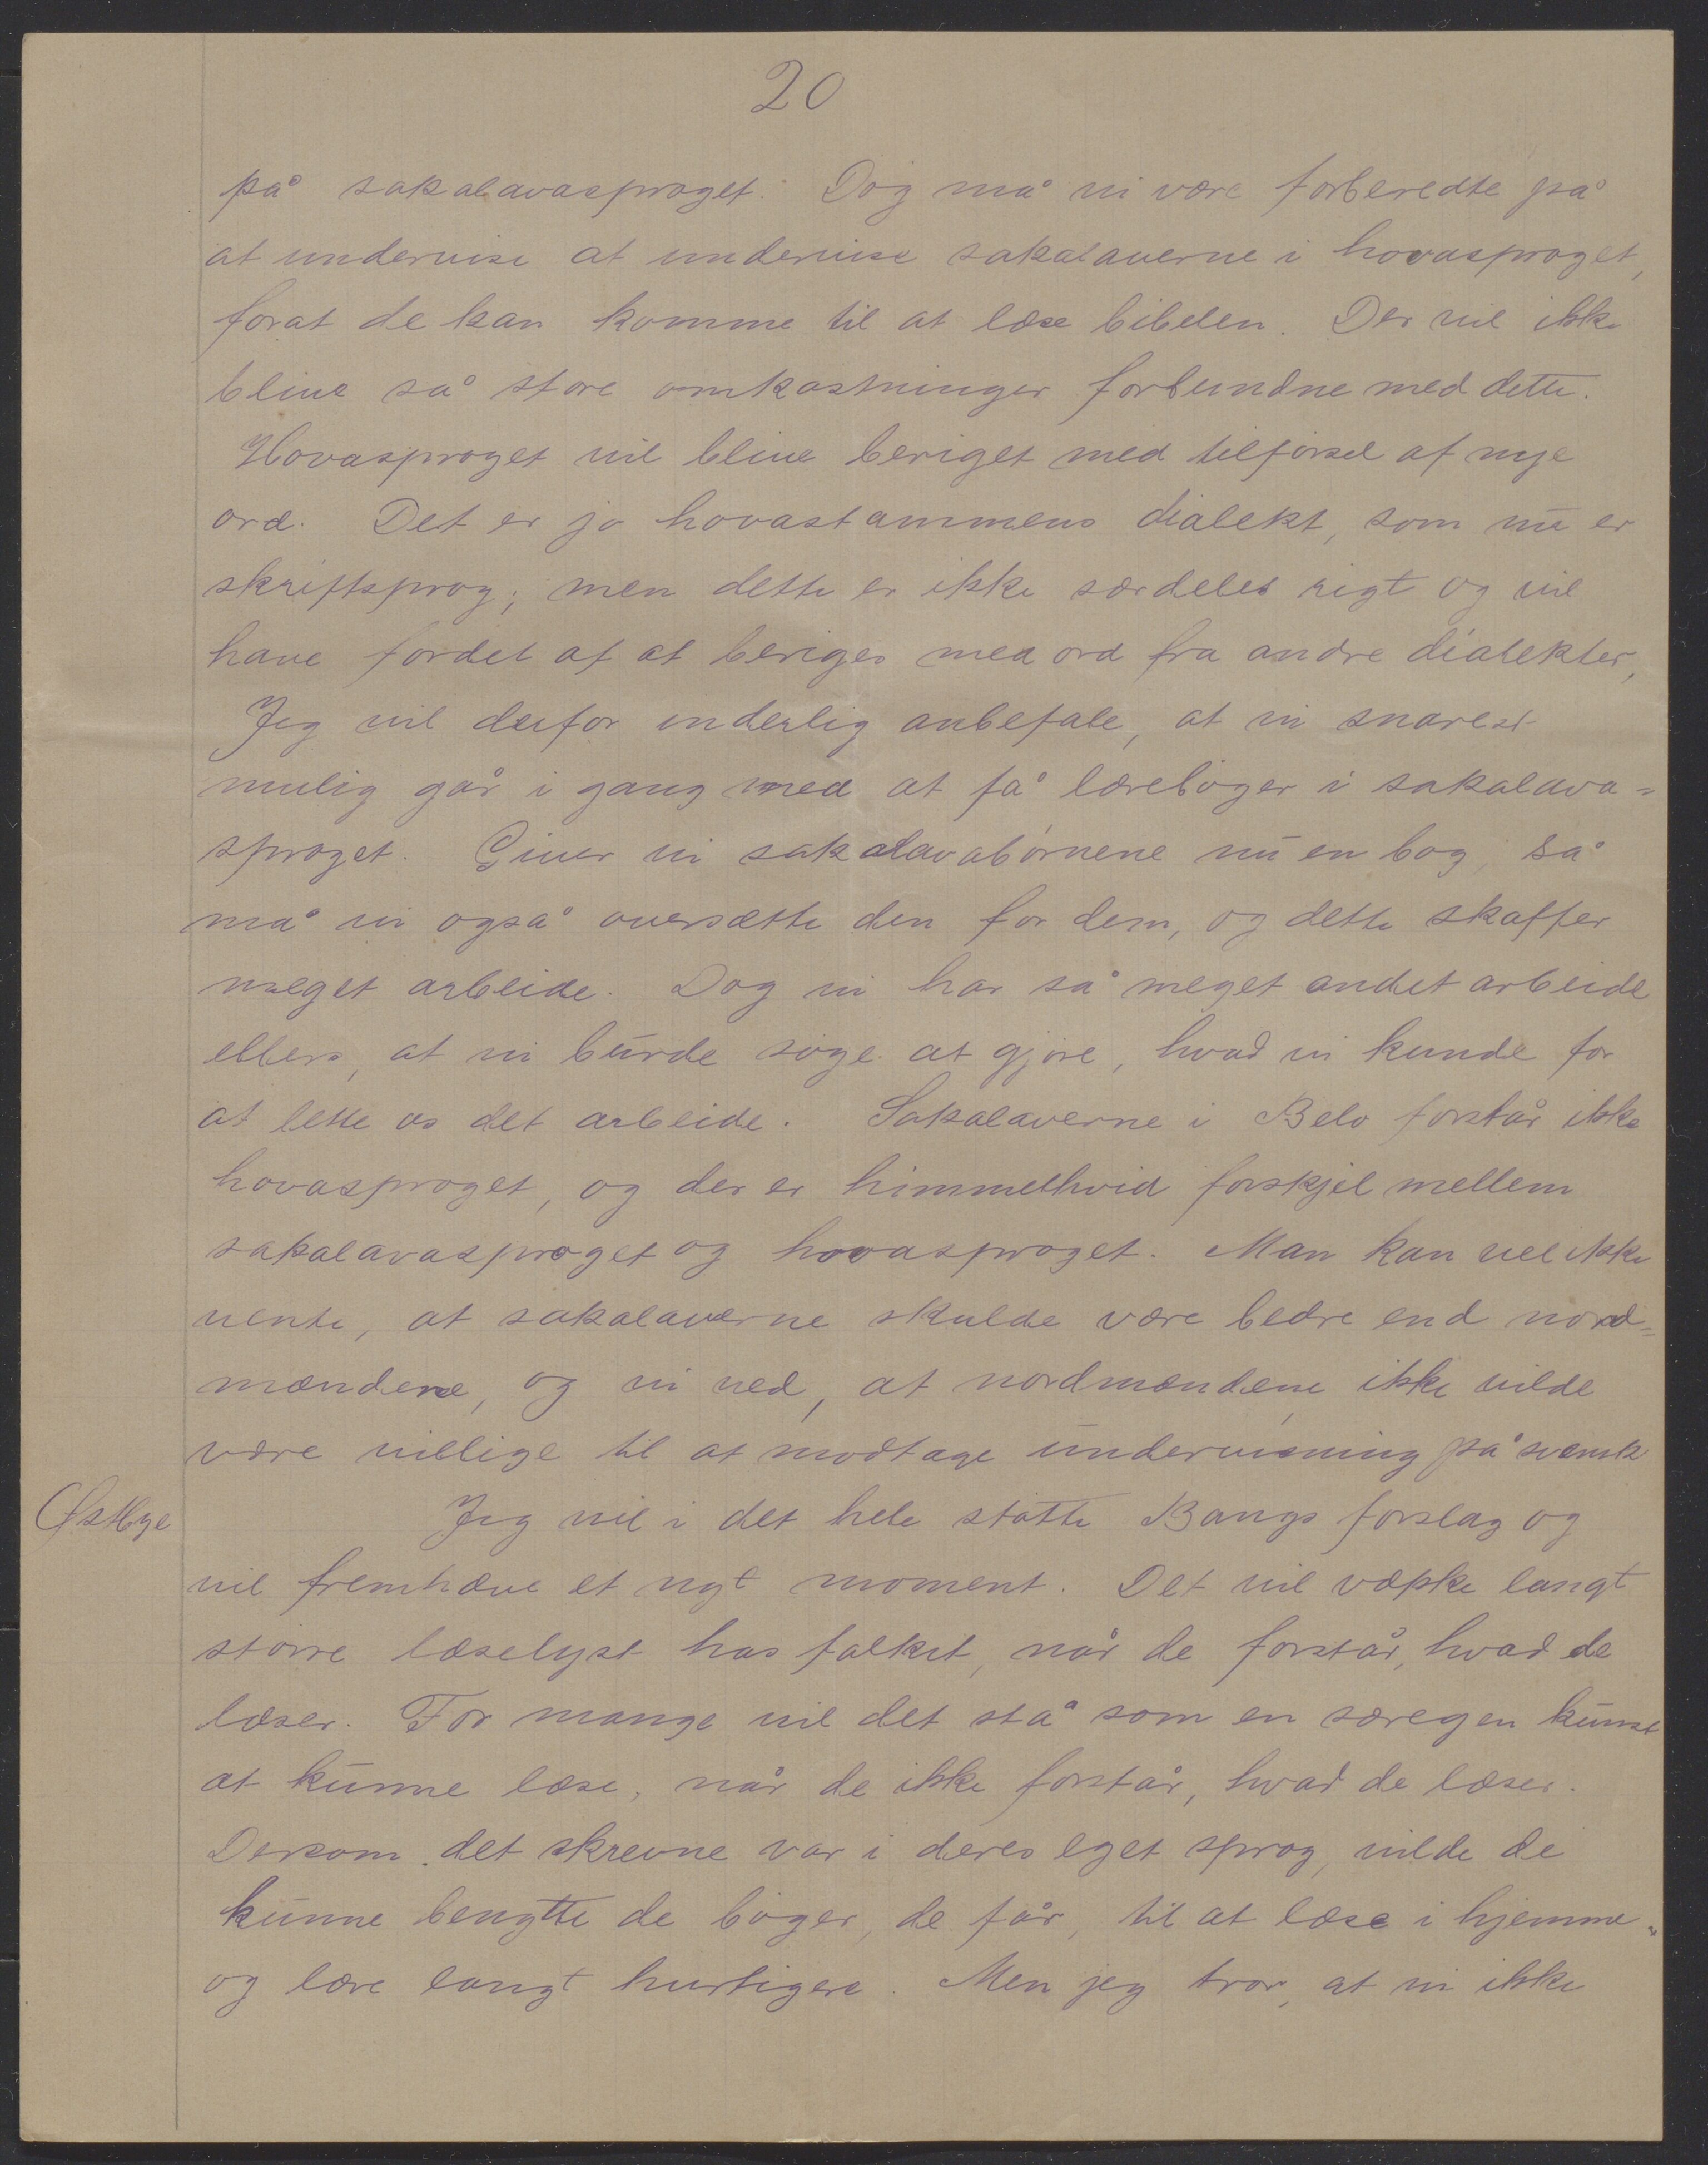 20
på sakalavasproget. Dog må vi være forberedte på
at undervise at undervise sakalaverne i hovasproget,
forat de kan komme til at læse bibelen. Der vil ikke
blive så store omkostninger forbundne med dette.
Hovasproget vil blive beriget med tilførsel af nye
ord. Det er jo hovastammens dialekt, som nu er
skriftsprog; men dette er ikke særdeles rigt og vil
have fordel af at beriges med ord fra andre dialekter,
Jeg vil derfor inderlig anbefale, at vi snarest
mulig går i gang med at få lærebøger i sakalava=
sproget. Giver vi sakalavabørnene nu en bog, så
må vi også oversætte den for dem, og dette skaffer
meget arbeide. Dog vi har så meget andet arbeide
ellers, at vi burde søge at gjøre, hvad vi kunde for
at lette os det arbeide. Sakalaverne i Belo forstår ikke
hovasproget, og der er himmelhvid forskjel mellem
sakalavasproget og hovasproget. Man kan vel ikke
vente, at sakalaverne skulde være bedre end nord=
mændene, og vi ved, at nordmændene ikke vilde
være villige til at modtage undervisning på svensk
Østbye Jeg vil i det hele støtte Bangs forslag og
vil fremhæve et nyt moment. Det vil vække langt
større læselyst hos folket, når de forstår, hvad de
læser. For mange vil det stå som en særegen kunst
at kunne læse, når de ikke forstår, hvad de læser.
Dersom det skrevne var i deres eget sprog, vilde de
kunne benytte de bøger, de får, til at læse i hjemme
og lære langt hurtigere. Men jeg tror, at vi ikke